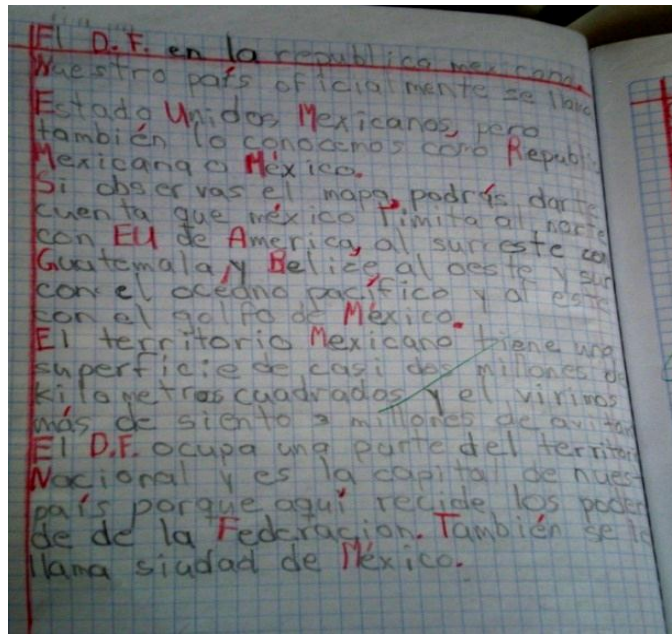 El D.F. en la republica mexicana.
Nuestro país oficialmente se llama
Estado Unidos Mexicanos, pero
también lo conocemos como Republi
Mexicana o México.
Si observas el mapa, podrás darte
cuenta que méxico limita al norte
con EU de America, al sureste co
Guatemala, y Belice, al oeste y sur
con el océano pacífico y al este
con el golfo de México.
El territorio Mexicano tiene una
superficie de casi dos millones de
kilometros cuadrados y el virimos
más de siento 3 millones de avitan
El D.F. ocupa una parte del territori
Nacional y es la capital de nuest
país porque aquí recide los poder
de de la Federacion. También se le
llama siudad de México.